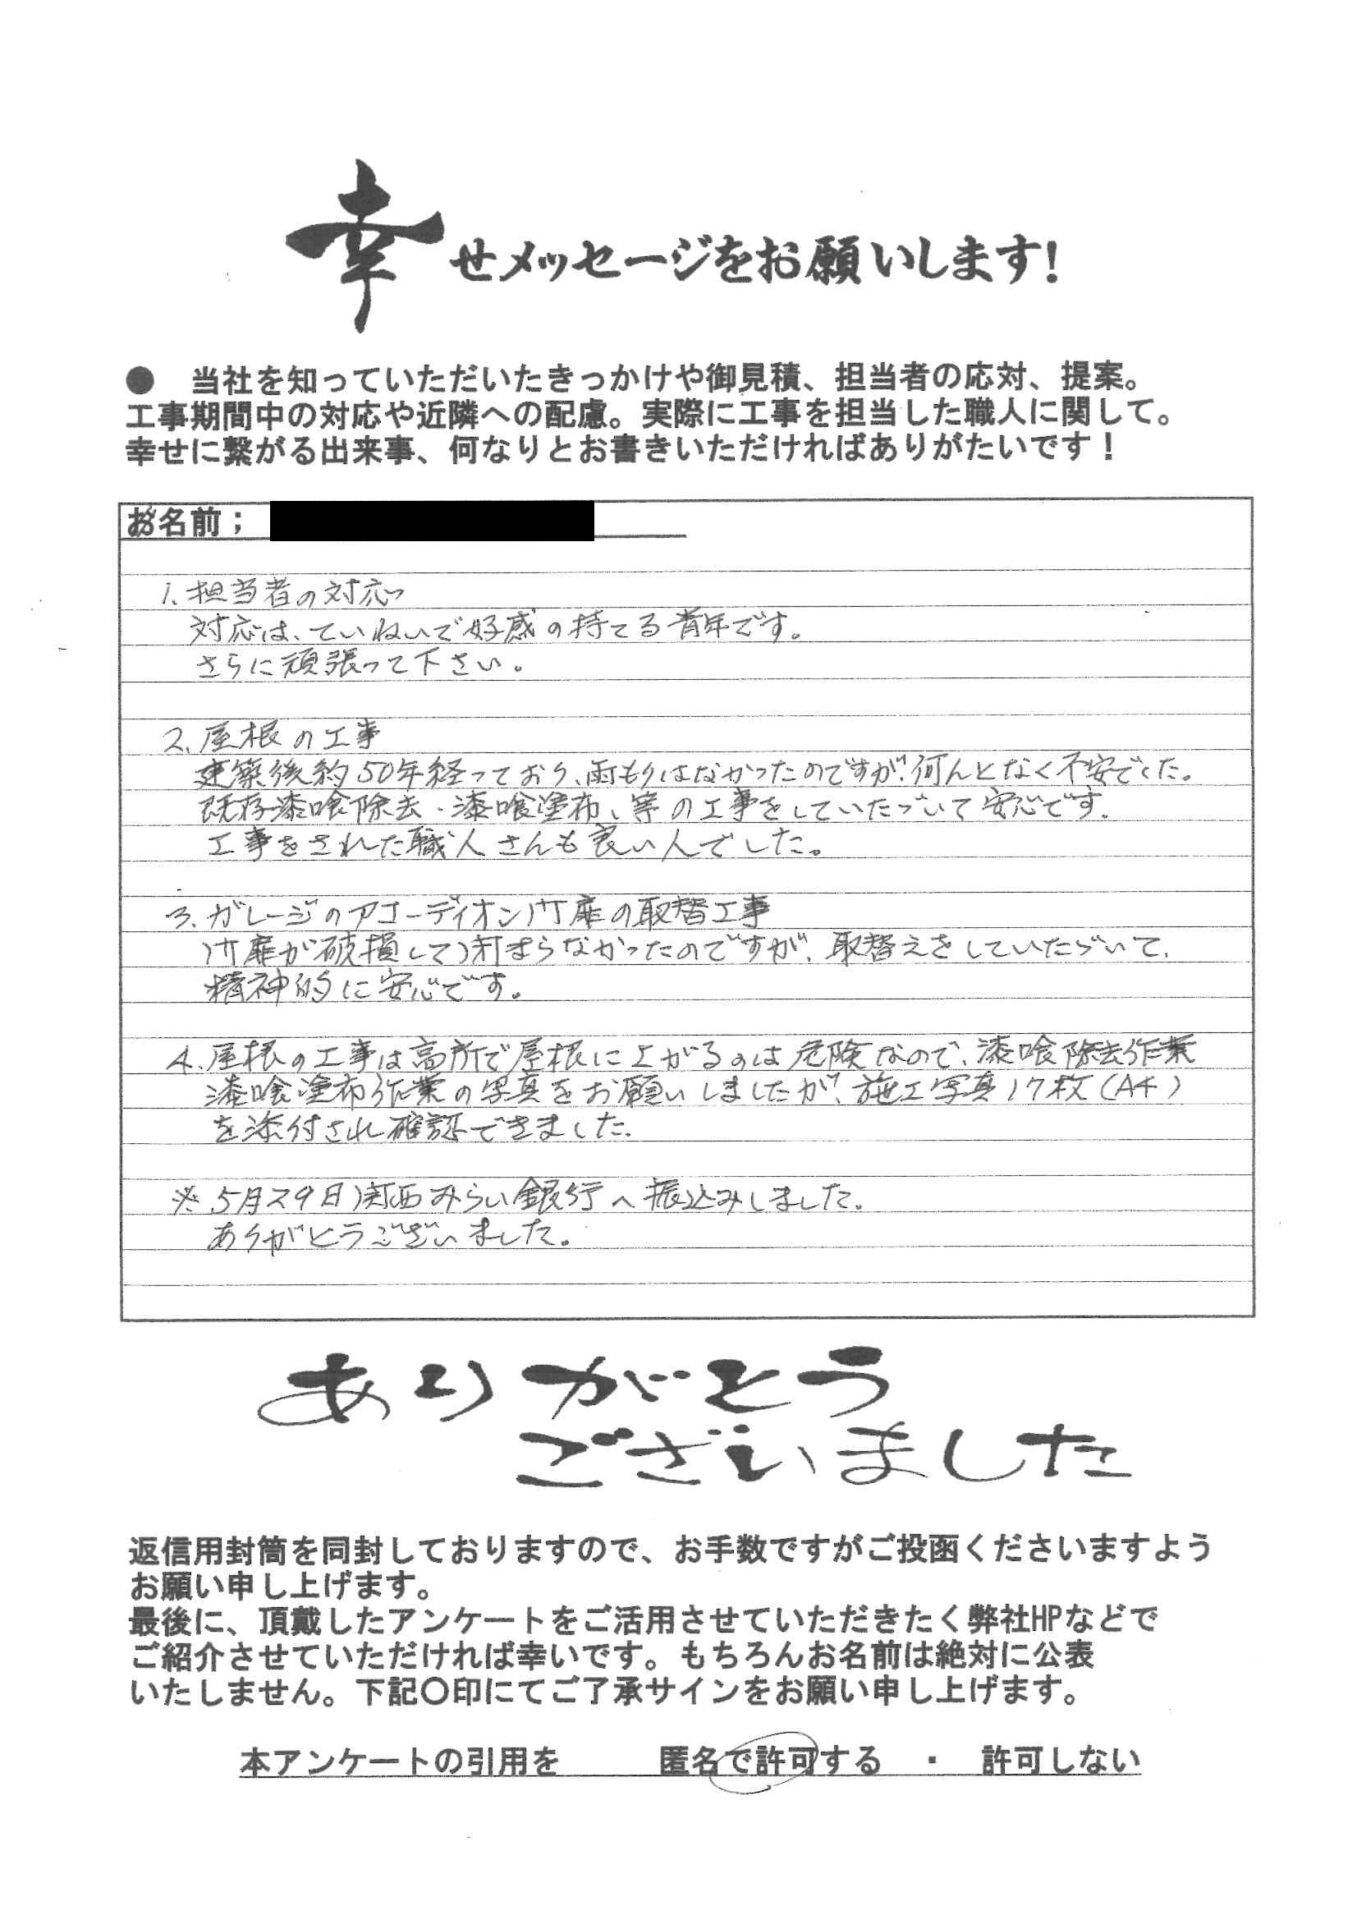 幸せメッセージをお願いします!
● 当社を知っていただいたきっかけや御見積、担当者の応対、提案。
工事期間中の対応や近隣への配慮。実際に工事を担当した職人に関して。
幸せに繋がる出来事、何なりとお書きいただければありがたいです！
お名前；
1. 担当者の対応
対応は、ていねいで好感の持てる青年です。
さらに頑張って下さい。
2. 屋根の工事
建築後約50年経っており、雨もりはなかったのですが、何んとなく不安でした。
既存漆喰除去・漆喰塗布、等の工事をしていただいて安心です。
工事をされた職人さんも良い人でした。
3. ガレージのアコーディオン門扉の取替工事
門扉が破損して閉まらなかったのですが、取替えをしていただいて、
精神的に安心です。
4. 屋根の工事は高所で屋根に上がるのは危険なので、漆喰除去作業
漆喰塗布作業の写真をお願いしましたが、施工写真17枚(A4)
を添付され確認できました。
※ 5月29日関西みらい銀行へ振込みしました。
ありがとうございました。
ありがとう
ございました
返信用封筒を同封しておりますので、お手数ですがご投函くださいますよう
お願い申し上げます。
最後に、頂戴したアンケートをご活用させていただきたく弊社HPなどで
ご紹介させていただければ幸いです。もちろんお名前は絶対に公表
いたしません。下記〇印にてご了承サインをお願い申し上げます。
本アンケートの引用を 匿名で許可する ・ 許可しない